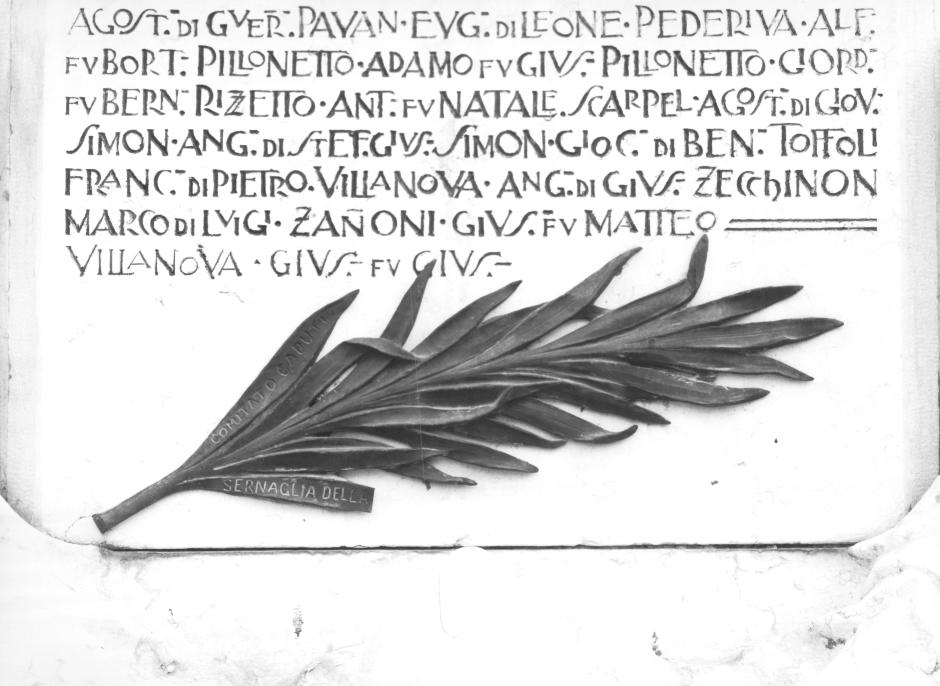 AGOST. DI GVER. PAVAN · EVG. DI LEONE · PEDERIVA · ALF.
FV BORT. PILLONETTO · ADAMO FV GIVS. PILLONETTO · GIORD.
FV BERN. RIZZETTO · ANT. FV NATALE. SCARPEL · AGOST. DI GIOV.
SIMON · ANG. DI STEF. GIVS. SIMON · GIOC. DI BEN. TOFFOLI
FRANC. DI PIETRO. VILLANOVA · ANG. DI GIVS. ZECCHINON
MARCO DI LVIGI · ZAÑONI · GIVS. FV MATTEO
VILLANOVA · GIVS. FV GIVS.
COMITATO CADUTI
SERNAGLIA DELLA